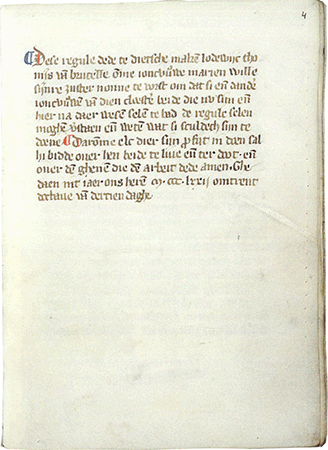 4
Dese regule dede te dietsche maken lodewijc tho
mijs van bruessele Om ioncvrouwe marien wille
sijnre zuster nonne te vorst om dat si en̄ ander
ioncvrouwen van dien cloester beide die nu sijn en̄
hier na daer wesen selen te bad de regule selen
moghen verstaen en̄ weten wat si sculdech sijn te
doene Daromme elc dier sijn profijt in doen sal
hi bidde ouer hen beide te liue en̄ ter doot · en̄
ouer den ghenen die den arbeit dede amen · Ghe
daen int iaer ons heren · M · CCC · lxxij omtrent
dertiendaghe